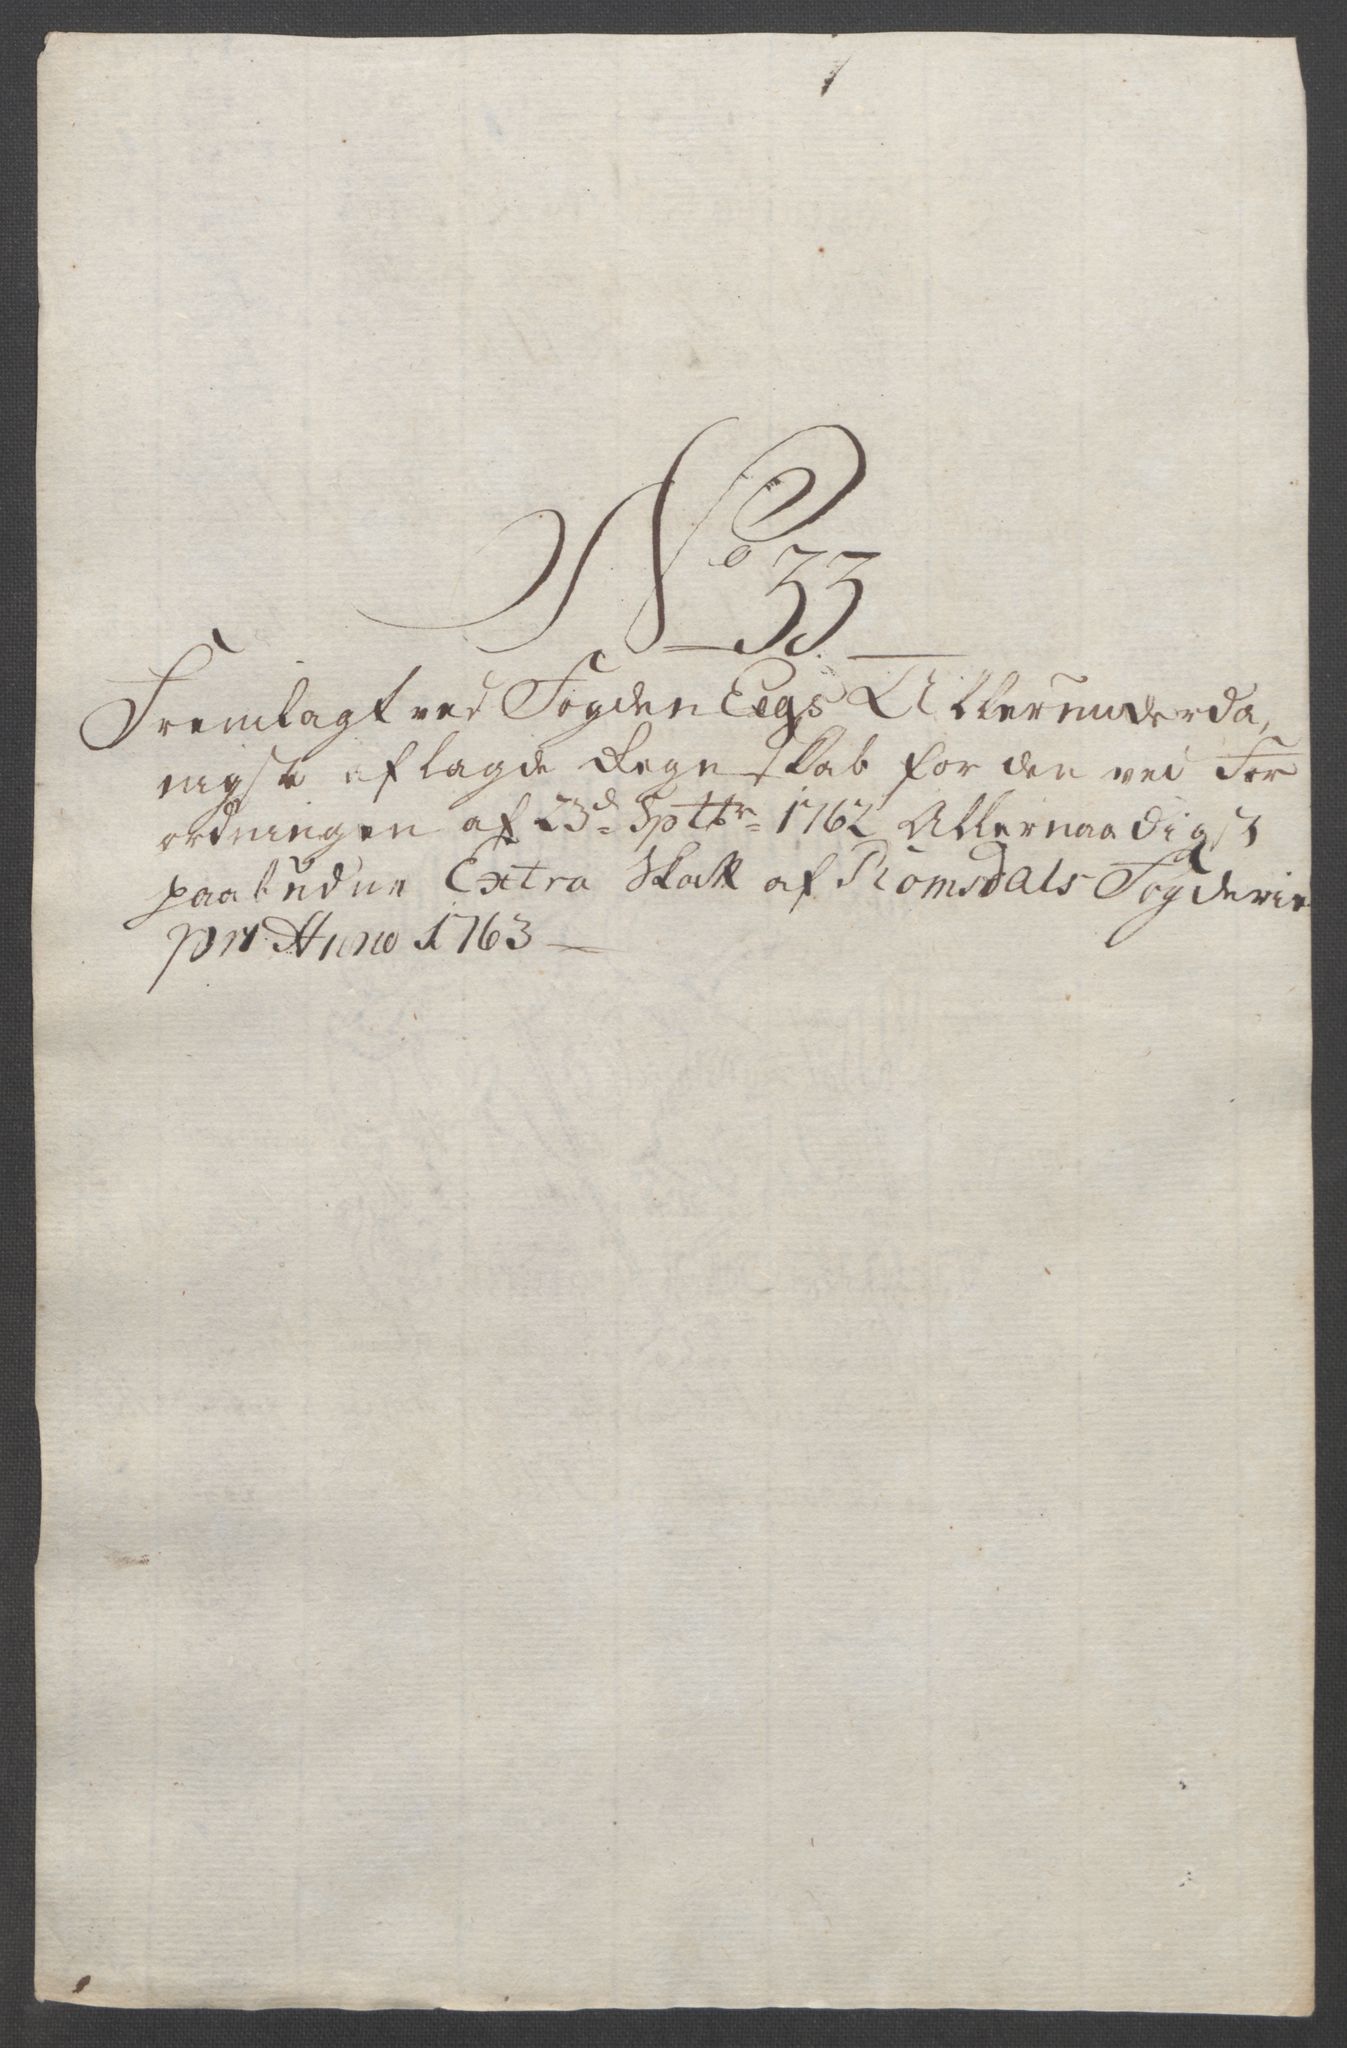 No 33
Fremlagt ved Fogden Eegs Allerunderda,
nigst aflagde Regnskab for den ved For
ordningen af 23d Sptbr 1762 Allernaadigst
paabudne Extra Skatt af Romsdals Fogderie
pro Anno 1763